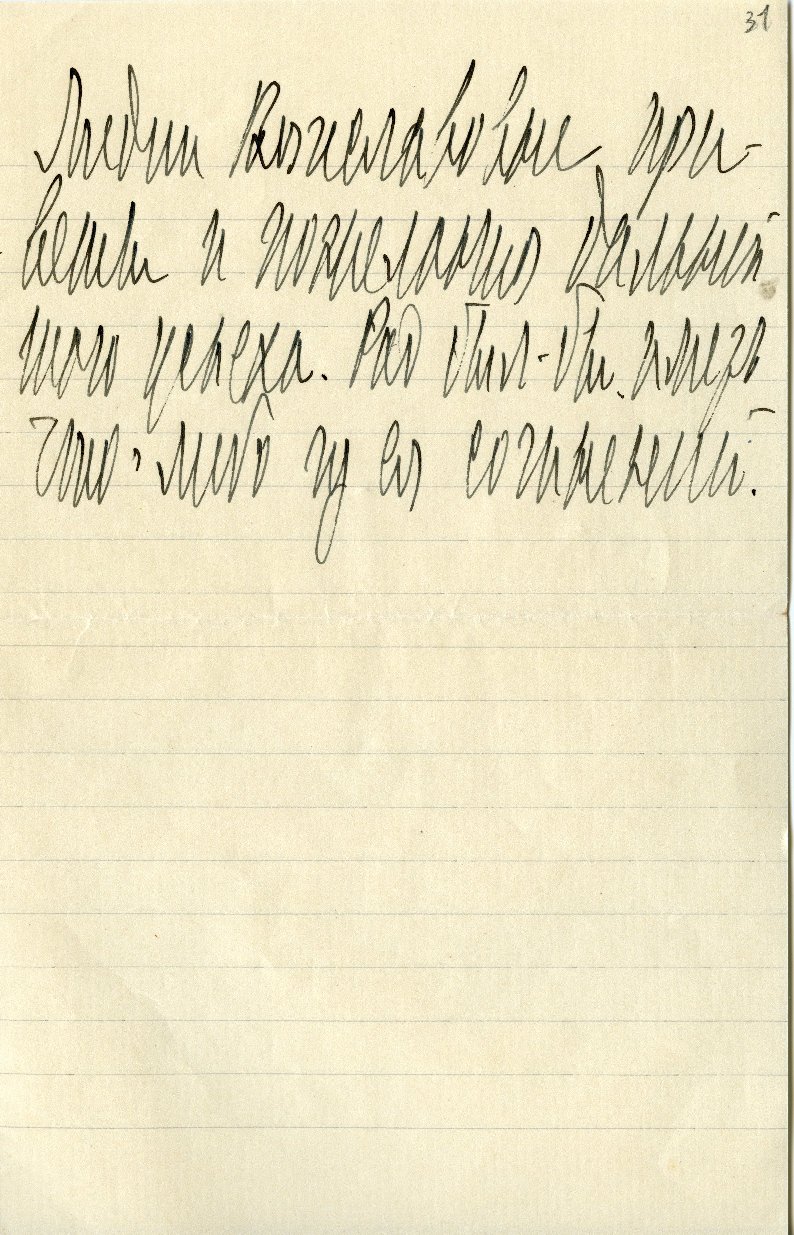 31
Лидии Вячеславовне, при-
веты и пожелания дальней
шого успеха. Рад был-бы иметь
что-либо из ея сочинений.